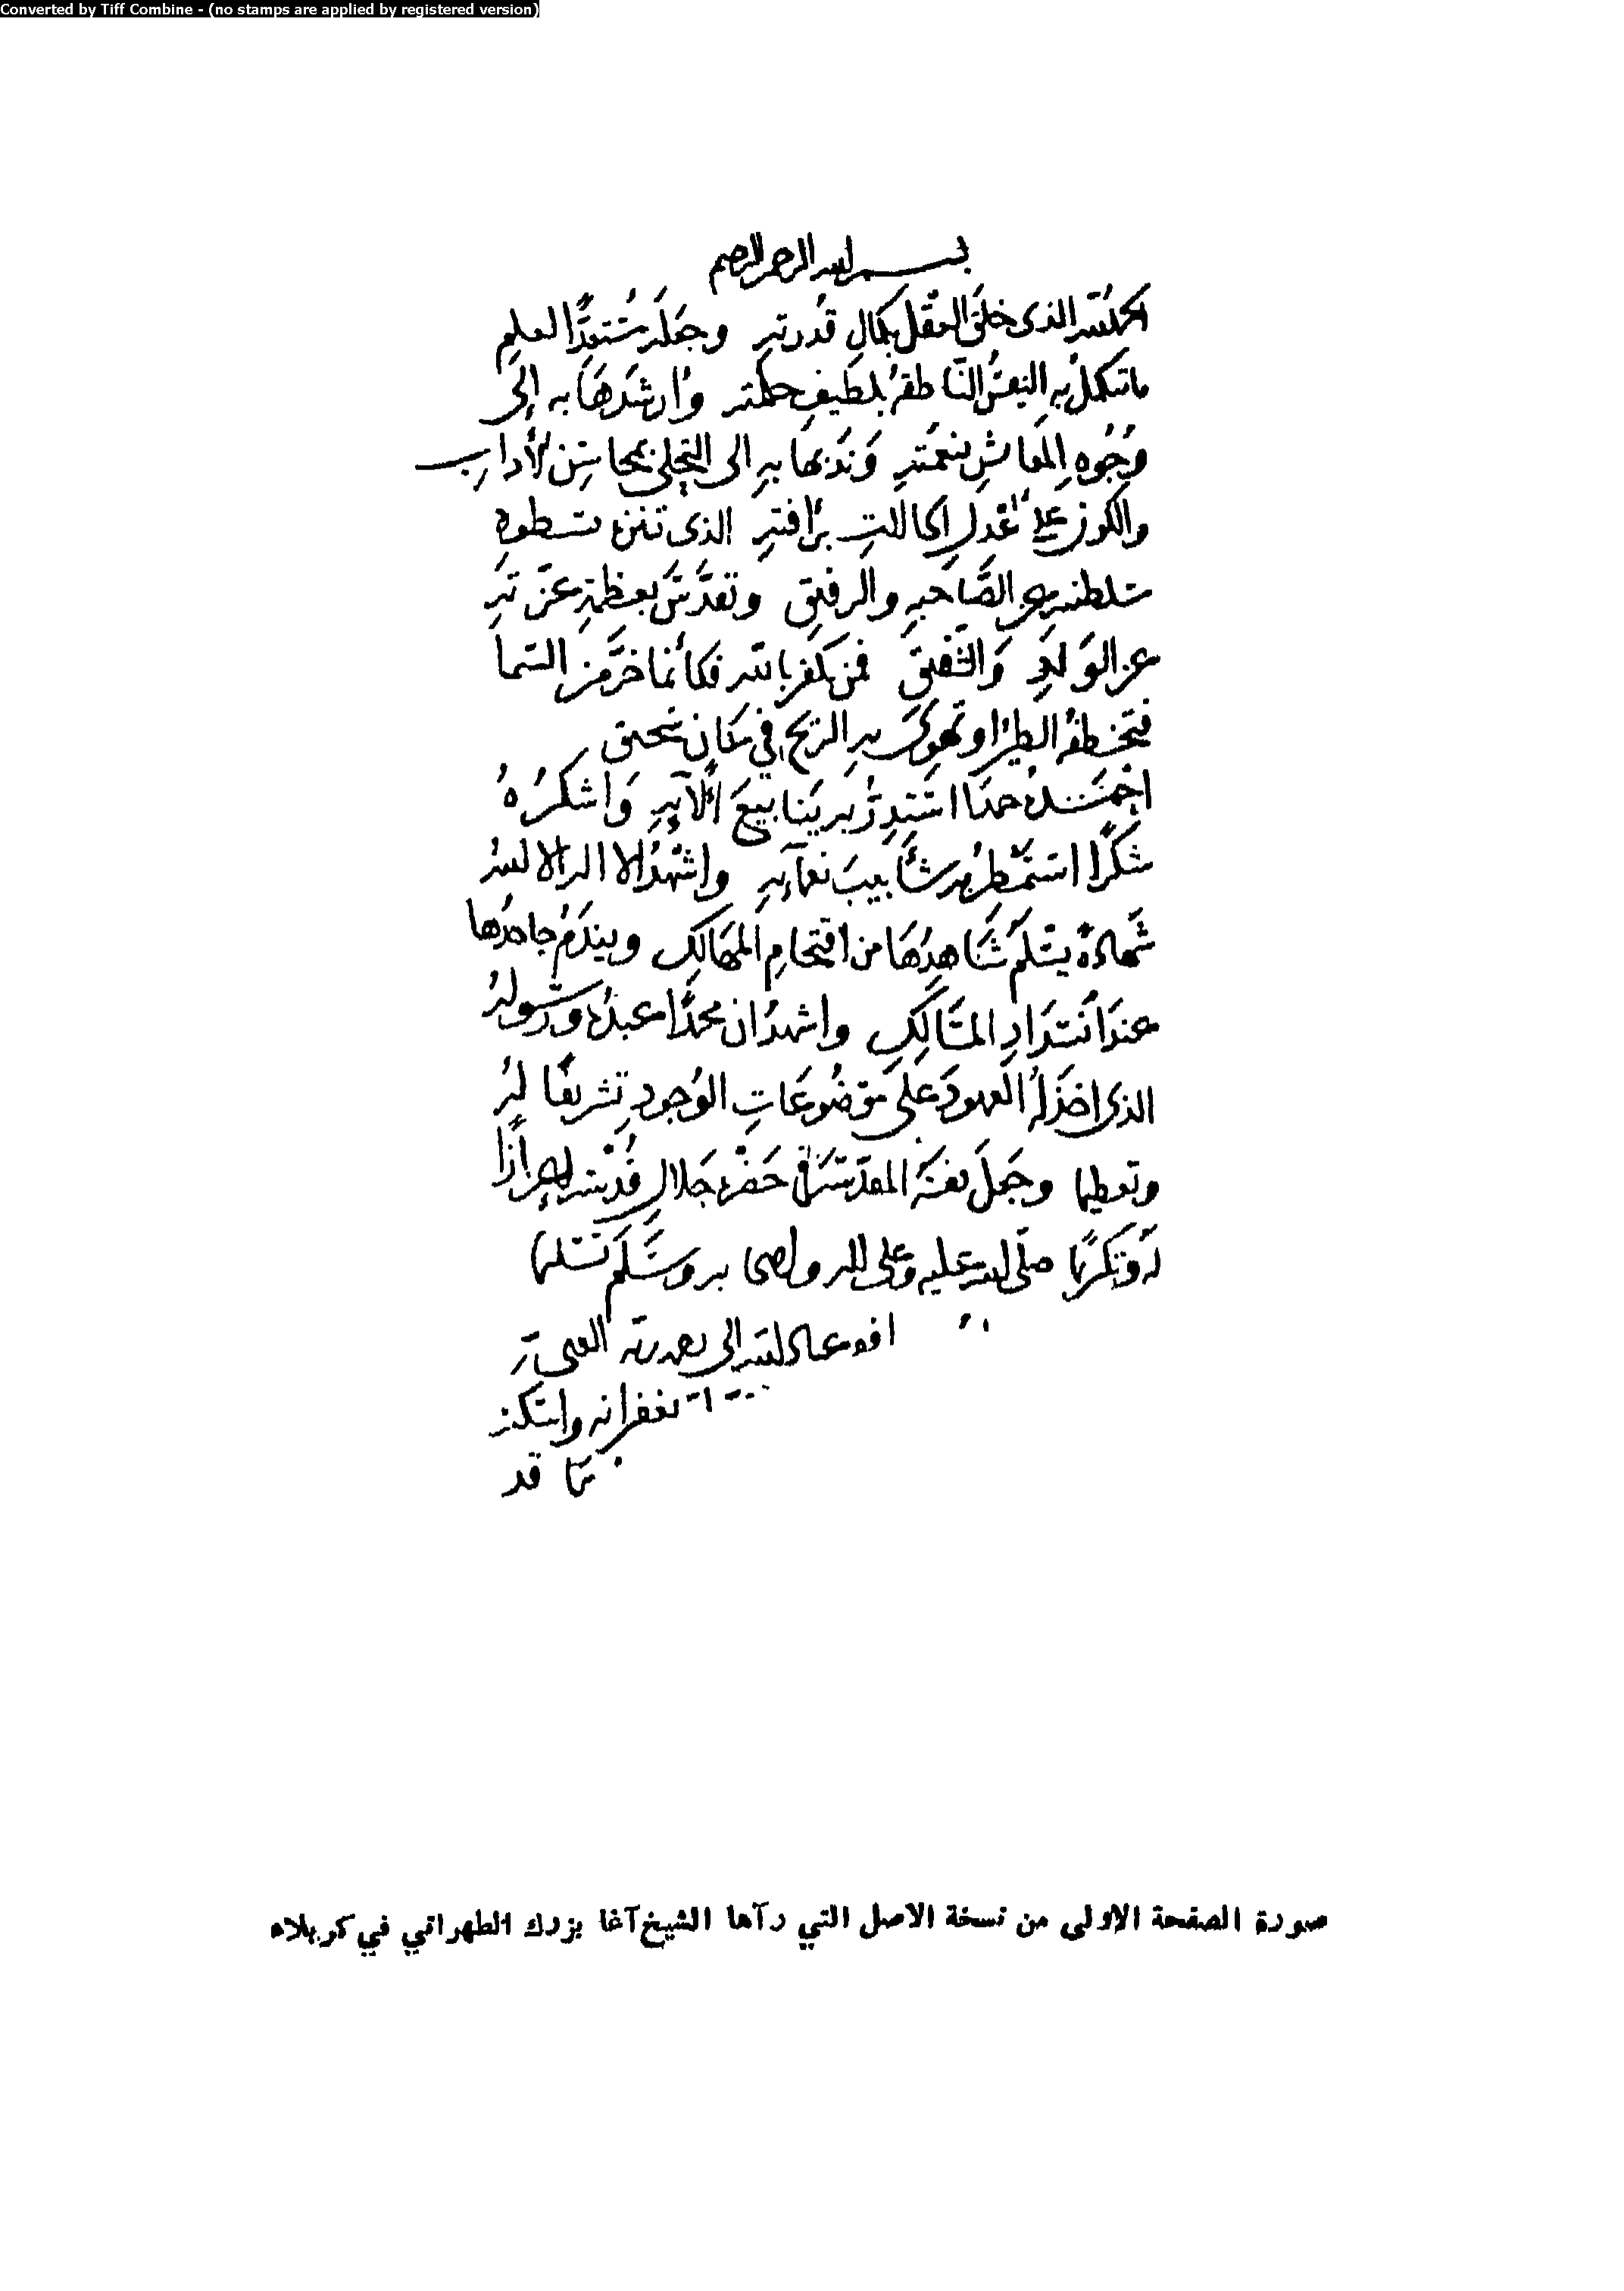 Converted by Tiff Combine - (no stamps are applied by registered version)
بسم الله الرحمن الرحيم
الحمد لله الذى خلق العقل بكمال قدرته وجعله مُستعدًّا لعلم
ما تكملُ به النفسُ الناطقهُ بلطيفِ حكمته وأرشدَهَا به إلى
وجُوهِ المعَاشِ بنعمتهِ وَندَبها بهِ الى التحلى بمحاسِن الأدابِ
والكون على أعْدلِ الحالاتِ برأفتهِ الذى تنزه بسطوهِ
سلطنته عن الصَّاحبهِ والرفيقِ وتقدَّسَ بعظمةِ عزّتهِ
عن الوَلدِ وَالشفيقِ فمن كفر بالله فكأنما خرَّ من السّما
فتخطفهُ الطيرُ او تَهوى به الريح في مكَان سَحيق
احْمَدهُ حمدًا اسْتدِرُّ به يَنابيعَ ألآئِهِ وَاشكرُهُ
شكرًا استَمْطِرُ به شأبيبَ نعمآئِهِ واشهدُ الا اله الا اللهُ
شهادةً يسْلَمُ شَاهِدُهَا من اقتحامِ المهَالكِ ويندَمُ جاحدُها
عندَ انسدَادِ المسَالكِ واشهدُ ان محمدًا عبدُه ورسُولهُ
الذى اخذ لهُ العهودَ عَلى موضُوعَاتِ الوُجودِ تشريفًا لهُ
وتعظيما وجَعلَ نفسَهُ المقدّسَهَ فى حَضْرهِ جَلالِ قُدْسه إعزازًا
لهُ وتكريمًا صلّى الله عليه وعلى اله واصحابه وسَلّمَ تسليما
عباد الله الى
بغفرانه
قد
صورة الصفحة الاولى من نسخة الاصل التي رآها الشيخ آغا بزرك الطهراني في كربلاء